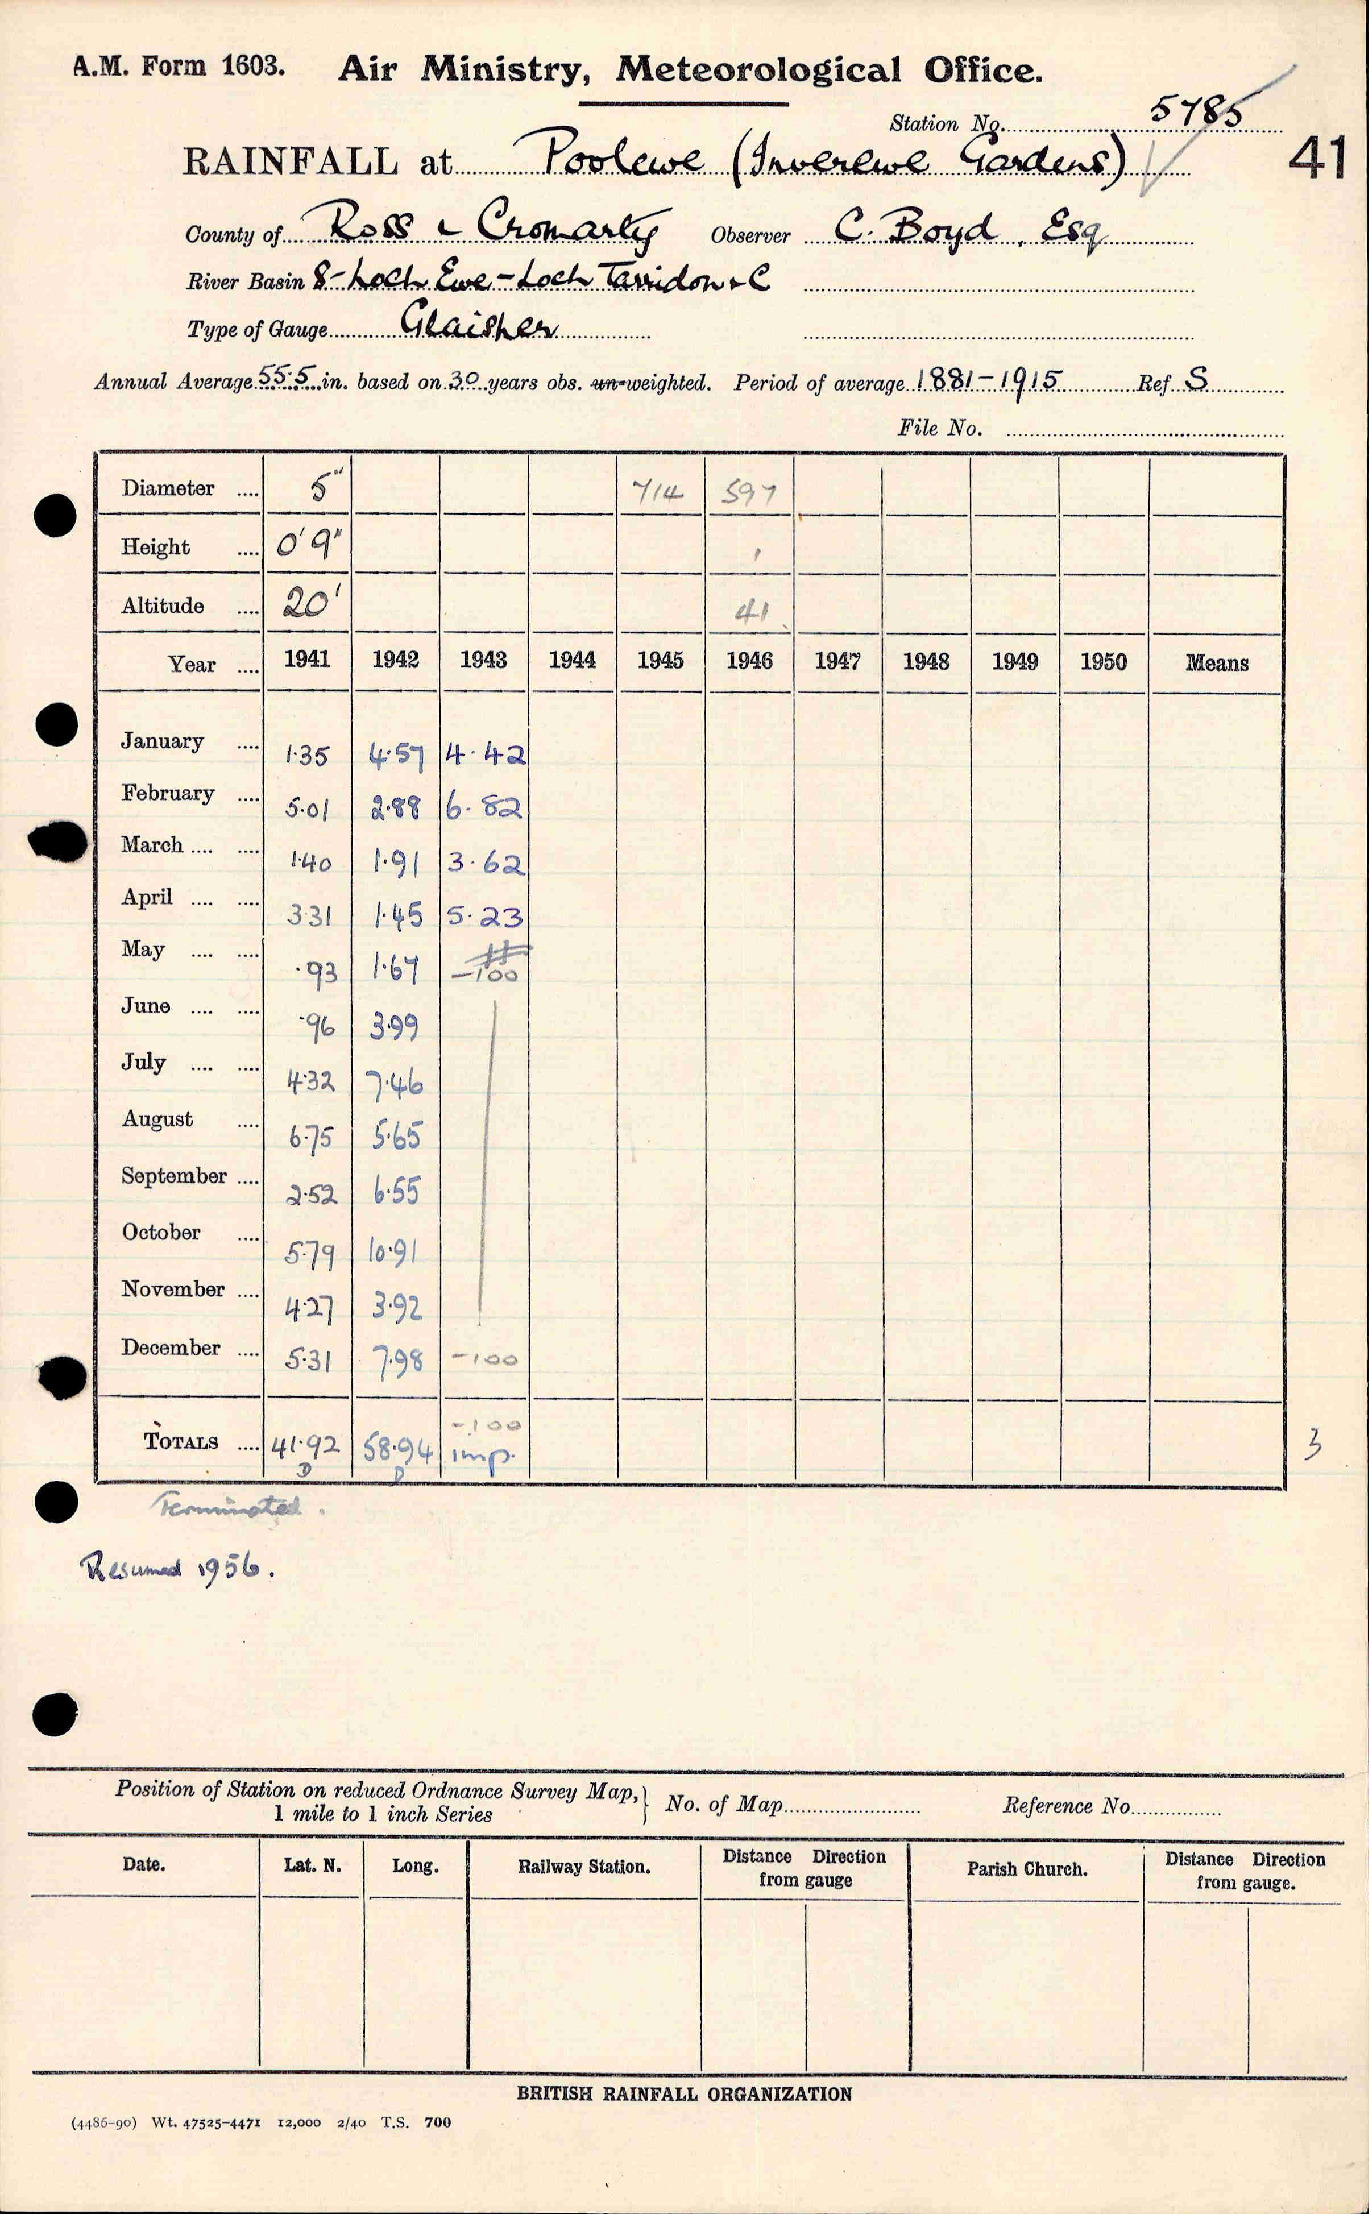 A.M. Form 1603. Air Ministry, Meteorological Office.
Station No. 5785
RAINFALL at Poolewe (Inverewe Gardens) 41
County of Ross & Cromarty Observer C. Boyd, Esq
River Basin 8-Loch Ewe-Loch Torridon & C
Type of Gauge Glaisher
Annual Average 55.5 in. based on 30 years obs. un-weighted. Period of average 1881-1915 Ref. S
File No.
Diameter .... 5" 714 597
Height .... 0' 9" '
Altitude .... 20' 41
Year .... 1941 1942 1943 1944 1945 1946 1947 1948 1949 1950 Means
January .... 1.35 4.57 4.42
February .... 5.01 2.88 6.82
March .... .... 1.40 1.91 3.62
April .... .... 3.31 1.45 5.23
May .... .... .93 1.67 -100
June .... .... .96 3.99
July .... .... 4.32 7.46
August .... 6.75 5.65
September .... 2.52 6.55
October .... 5.79 10.91
November .... 4.27 3.92
December .... 5.31 7.98 -100
-100
TOTALS .... 41.92 58.94 imp. 3
D D
Terminated.
Resumed 1956.
Position of Station on reduced Ordnance Survey Map, } No. of Map Reference No.
1 mile to 1 inch Series
Date. Lat. N. Long. Railway Station. Distance Direction from gauge Parish Church. Distance Direction from gauge.
BRITISH RAINFALL ORGANIZATION
(4486-90) Wt. 47525-4471 12,000 2/40 T.S. 700